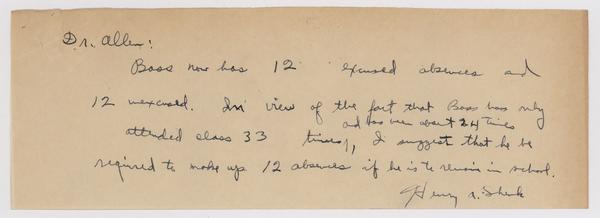 Dr. Allen:
Bass now has 12 excused absences and
12 unexcused. In view of the fact that Bass has only
attended class 33 times, and has been absent 24 times, I suggest that he be
required to make up 12 absences if he is to remain in school.
Henry A. Shenk